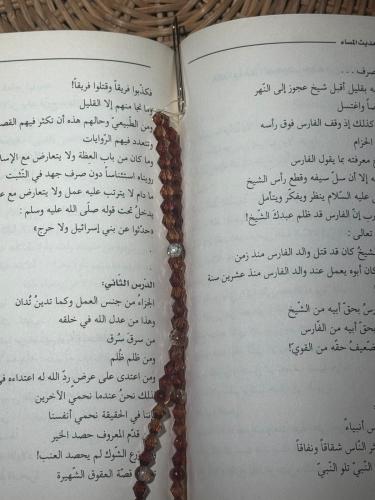 حديث المساء
صرف ...
بقليل أقبل شيخ عجوز إلى النّهر
واغتسل
كذلك إذ وقف الفارس فوق رأسه
الحزام
معرفته بما يقول الفارس
إلا أن سلّ سيفه وقطع رأس الشيخ
عليه السّلام ينظر ويفكّر ويتأمل
إنّ الفارس قد ظلم عبدكَ الشّيخ!
تعالى :
كان قد قتل والد الفارس منذ زمن
كان أبوه يعمل عند والد الفارس منذ عشرين سنة
بحقّ أبيه من الشّيخ
بحقّ أبيه من الفارس
حقّه من القويّ!
أنبياءً
النّاس شقاقاً ونفاقاً
النّبيّ تلو النّبيّ
فكذّبوا فريقاً وقتلوا فريقاً!
وما نجا منهم إلا القليل
ومن الطّبيعيّ وحالهم هذه أن تكثر فيهم
وتتعدد فيهم الرّوايات
وما كان من باب العظة ولا يتعارض مع
رويناه استئناساً دون صرف جهد في التّثبت
ما دام لا يترتب عليه عمل ولا يتعارض مع
يدخلُ تحت قوله صلّى الله عليه وسلم :
«حدّثوا عن بني إسرائيل ولا حرج»
.
الدّرس الثّاني:
الجزاءُ من جنس العمل وكما تدينُ تُدان
وهذا من عدل الله في خلقه
من سرقَ سُرق
ومن ظلم ظُلم
ومن اعتدى على عرضٍ ردّ الله له اعتداءه في
ذلك نحنُ عندما نحمي الآخرين
إننا في الحقيقة نحمي أنفسنا
قدّم المعروف حصد الخير
زرع الشّوك لم يحصد العنب!
قصّة العقوق الشّهيرة